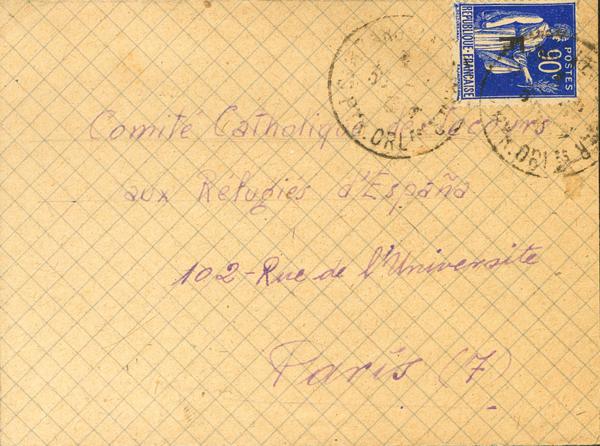 REPUBLIQUE-FRANÇAISE
F
POSTES
90
Comité Catholique de Secours
aux Réfugies d'España
102-Rue de l'Universite
París (7)